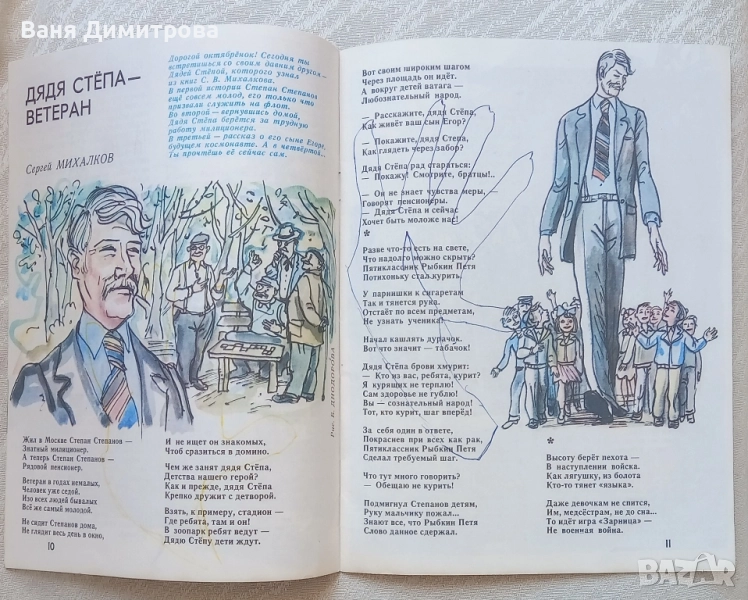 Ваня Димитрова
ДЯДЯ СТЁПА—
ВЕТЕРАН
Сергей МИХАЛКОВ
Дорогой октябрёнок! Сегодня ты
встретишься со своим давним другом—
Дядей Стёпой, которого узнал
из книг С. В. Михалкова.
В первой истории Степан Степанов
ещё совсем молод, его только что
призвали служить на флот.
Во второй — вернувшись домой,
Дядя Стёпа берётся за трудную
работу милиционера.
В третьей — рассказ о его сыне Егоре,
будущем космонавте. А в четвёртой...
Ты прочтёшь её сейчас сам.
Рис. Б. ДИОДОРОВА
Жил в Москве Степан Степанов —
Знатный милиционер.
А теперь Степан Степанов —
Рядовой пенсионер.
Ветеран в годах немалых,
Человек уже седой.
Изо всех людей бывалых
Всё же самый молодой.
Не сидит Степанов дома,
Не глядит весь день в окно,
И не ищет он знакомых,
Чтоб сразиться в домино.
Чем же занят дядя Стёпа,
Детства нашего герой?
Как и прежде, дядя Стёпа
Крепко дружит с детворой.
Взять, к примеру, стадион —
Где ребята, там и он!
В зоопарк ребят ведут —
Дядю Стёпу дети ждут.
10
Вот своим широким шагом
Через площадь он идёт.
А вокруг детей ватага —
Любознательный народ.
— Расскажите, дядя Стёпа,
Как живёт ваш сын Егор?
— Покажите, дядя Стёпа,
Как глядеть через забор?
Дядя Стёпа рад стараться:
— Покажу! Смотрите, братцы!..
— Он не знает чувства меры, —
Говорят пенсионеры.
— Дядя Стёпа и сейчас
Хочет быть моложе нас!
*
Разве что-то есть на свете,
Что надолго можно скрыть?
Пятиклассник Рыбкин Петя
Потихоньку стал курить.
У парнишки к сигаретам
Так и тянется рука.
Отстаёт по всем предметам,
Не узнать ученика!
Начал кашлять дурачок.
Вот что значит — табачок!
Дядя Стёпа брови хмурит:
— Кто из вас, ребята, курит?
Я курящих не терплю!
Сам здоровье не гублю!
Вы — сознательный народ!
Тот, кто курит, шаг вперёд!
За себя один в ответе,
Покраснев при всех как рак,
Пятиклассник Рыбкин Петя
Сделал требуемый шаг.
Что тут много говорить?
— Обещаю не курить!
Подмигнул Степанов детям,
Руку мальчику пожал...
Знают все, что Рыбкин Петя
Слово данное сдержал.
*
Высоту берёт пехота —
В наступлении войска.
Как лягушку, из болота
Кто-то тянет «языка».
Даже девочкам не спится,
Им, медсёстрам, не до сна...
То идёт игра «Зарница» —
Не военная война.
11
BAZAR